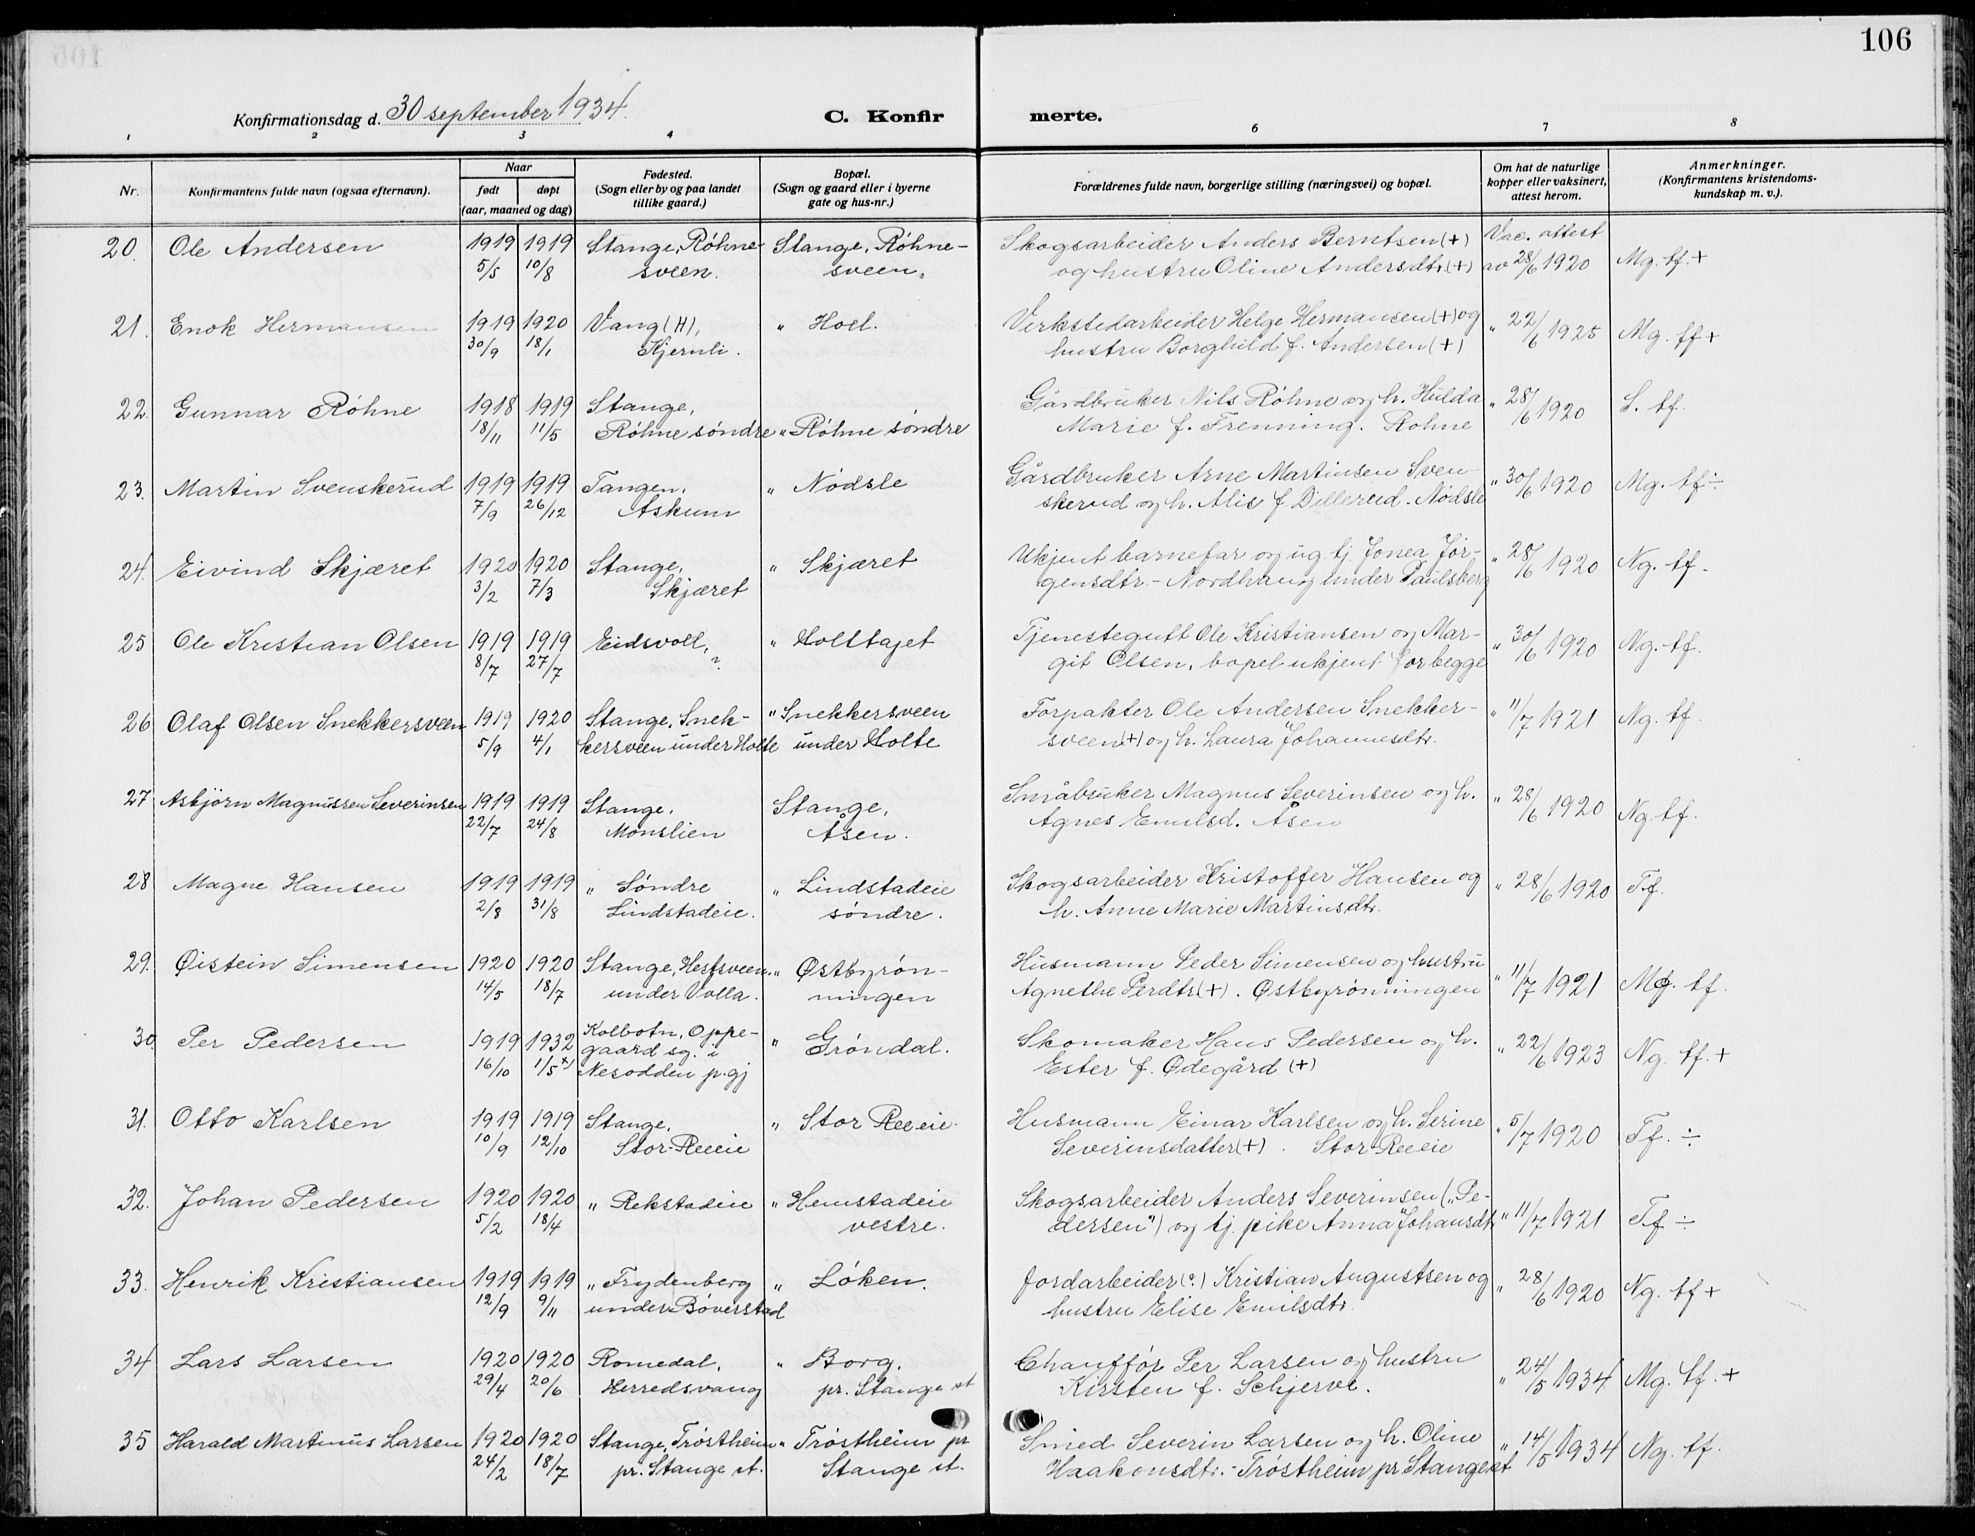 106
Konfirmationsdag d. 30 september 1934.
C. Konfir merte.
1 2 3 4 6 7 8
Nr. Konfirmantens fulde navn (ogsaa efternavn). Naar født døpt (aar, maaned og dag) Fødested. (Sogn eller by og paa landet tillike gaard.) Bopæl. (Sogn og gaard eller i byerne gate og hus-nr.) Forældrenes fulde navn, borgerlige stilling (næringsvei) og bopæl. Om hat de naturlige kopper eller vaksinert, attest herom. Anmerkninger. (Konfirmantens kristendomskundskap m. v.).
20. Ole Andersen 1919 1919 Stange, Røhne- Stange, Røhne- Skogsarbeider Anders Berntsen (+) Vac. attest
5/5 10/8 sveen. sveen. og hustru Oline Andersdtr. (+) av 28/6 1920 Mg. tf. +
21. Enok Hermansen 1919 1920 Vang (H), " Hoel. Verkstedarbeider Helge Hermansen (+) og " 22/6 1925 Mg. tf +
30/9 18/1 Kjernli. hustru Borghild f. Andersen (+)
22. Gunnar Røhne 1918 1919 Stange, Gårdbruker Nils Røhne og h. Hulda " 28/6 1920 S. tf.
18/11 11/5 Røhne søndre " Røhne søndre Marie f. Frenning. Røhne
23. Martin Svenskerud 1919 1919 Tangen, " Nødsle Gårdbruker Arne Martinsen Sven- " 30/6 1920 Mg. tf ÷
7/9 26/12 Askum skerud og h. Alis f Dillerud. Nødsle
24. Eivind Skjæret 1920 1920 Stange, " Skjæret Ukjent barnefar og ug. tj. Jonea Jør- " 28/6 1920 Ng. tf.
3/2 7/3 Skjæret gensdtr. - Nordhaug under Paulsberg
25 Ole Kristian Olsen 1919 1919 Eidsvoll, " Holttajet Tjenestegutt Ole Kristiansen og Mar- " 30/6 1920 Ng. tf.
8/7 27/7 ? git Olsen, bopel ukjent for begge
26 Olaf Olsen Snekkersveen 1919 1920 Stange, Snek- " Snekkersveen Forpakter Ole Andersen Snekker- " 11/7 1921 Ng. tf.
5/9 4/1 kersveen under Holte under Holte sveen (+) og h. Laura Johannesdtr.
27 Asbjørn Magnussen Severinsen 1919 1919 Stange. Stange, Småbruker Magnus Severinsen og h. " 28/6 1920 Ng. tf.
22/7 24/8 Monslien Åsen. Agnes Emilsd. Åsen
28 Magne Hansen 1919 1919 " Søndre " Lindstadeie Skogsarbeider Kristoffer Hansen og " 28/6 1920 Tf.
2/8 31/8 Lindstadeie. søndre. h. Anne Marie Martinsdtr.
29. Øistein Simensen 1920 1920 Stange, Hesfsveen " Østbyrøn- Husmann Peder Simensen og hustru " 11/7 1921 Mg. tf.
14/5 18/7 under Volla. ningen Agnethe Perdtr (+). Østbyrønningen
30. Per Pedersen 1919 1932 Kolbotn, Oppe- " Grøndal. Skomaker Hans Pedersen og h. " 22/6 1923 Ng. tf. +
16/10 1/5 x) gaard sg. i Ester f. Ødegård (+)
Nesodden p.gj
31. Otto Karlsen 1919 1919 Stange, " Stor Reeie. Husmann Einar Karlsen og h. Serine " 5/7 1920 Tf. ÷
10/9 12/10 Stor-Reeie Severinsdatter (+). Stor-Reeie
32. Johan Pedersen 1920 1920 " Rekstadeie " Hemstadeie Skogsarbeider Anders Severinsen („Pe- " 11/7 1921 Tf ÷
5/2 18/4 vestre. dersen") og tj. pike Anna Johansdtr
33. Henrik Kristiansen 1919 1919 " Frydenberg " Løken. Jordarbeider (?) Kristian Augustsen og " 28/6 1920 Ng. tf +
12/9 9/11 under Bøverstad hustru Elise Emilsdtr.
34 Lars Larsen 1920 1920 Romedal, " Borg. Chauffør Per Larsen og hustru " 24/5 1934 Mg. tf. +
29/4 20/6 Herredsvang pr. Stange st Kirsten f. Schjerve.
35 Harald Martinus Larsen 1920 1920 Stange, Trøstheim " Trøstheim pr Smed Severin Larsen og h. Oline " 14/5 1934 Ng. tf.
24/2 18/7 pr. Stange st. Stange st. Haakonsdtr. - Trøstheim pr Stange st